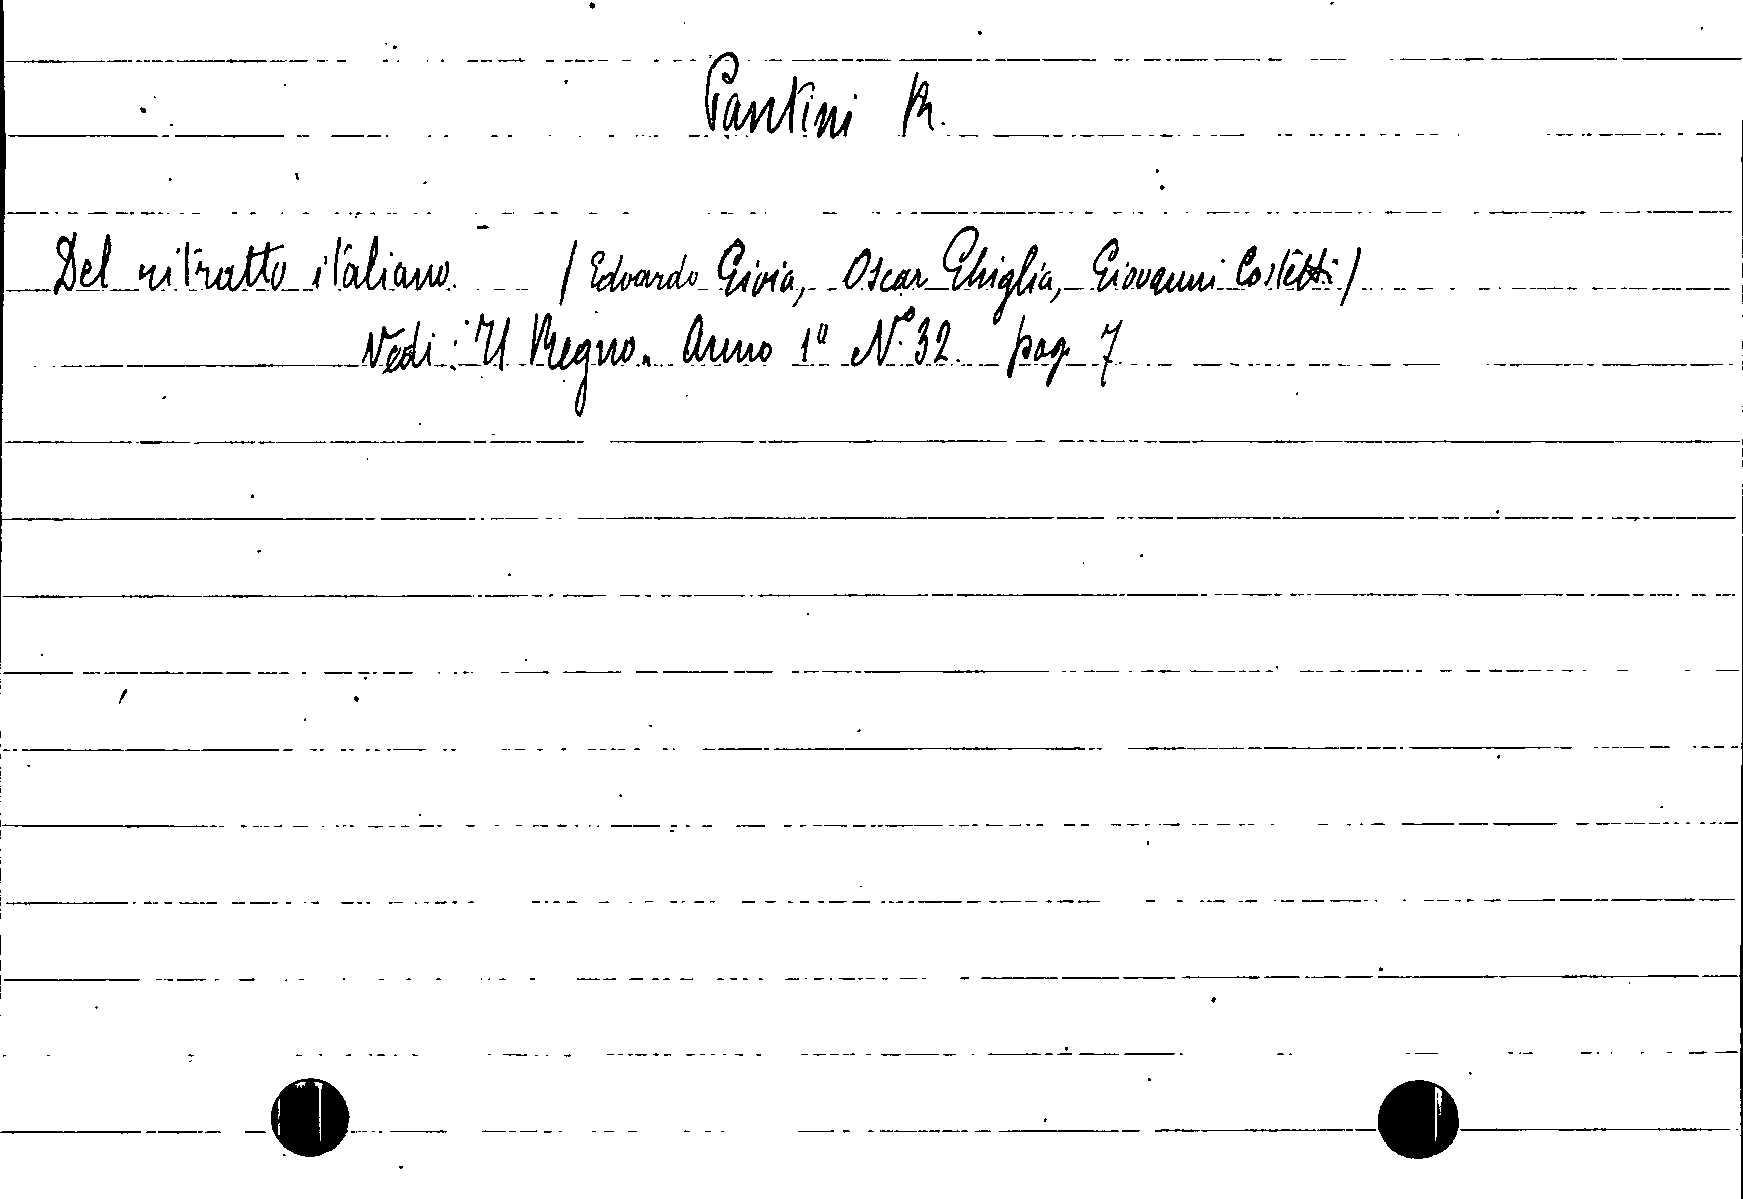 Pantini R.
Del ritratto italiano. / Edoardo Gioia, Oscar Ghiglia, Giovanni Costetti /
Vedi: Il Regno. Anno 1º Nº 32. pag. 7